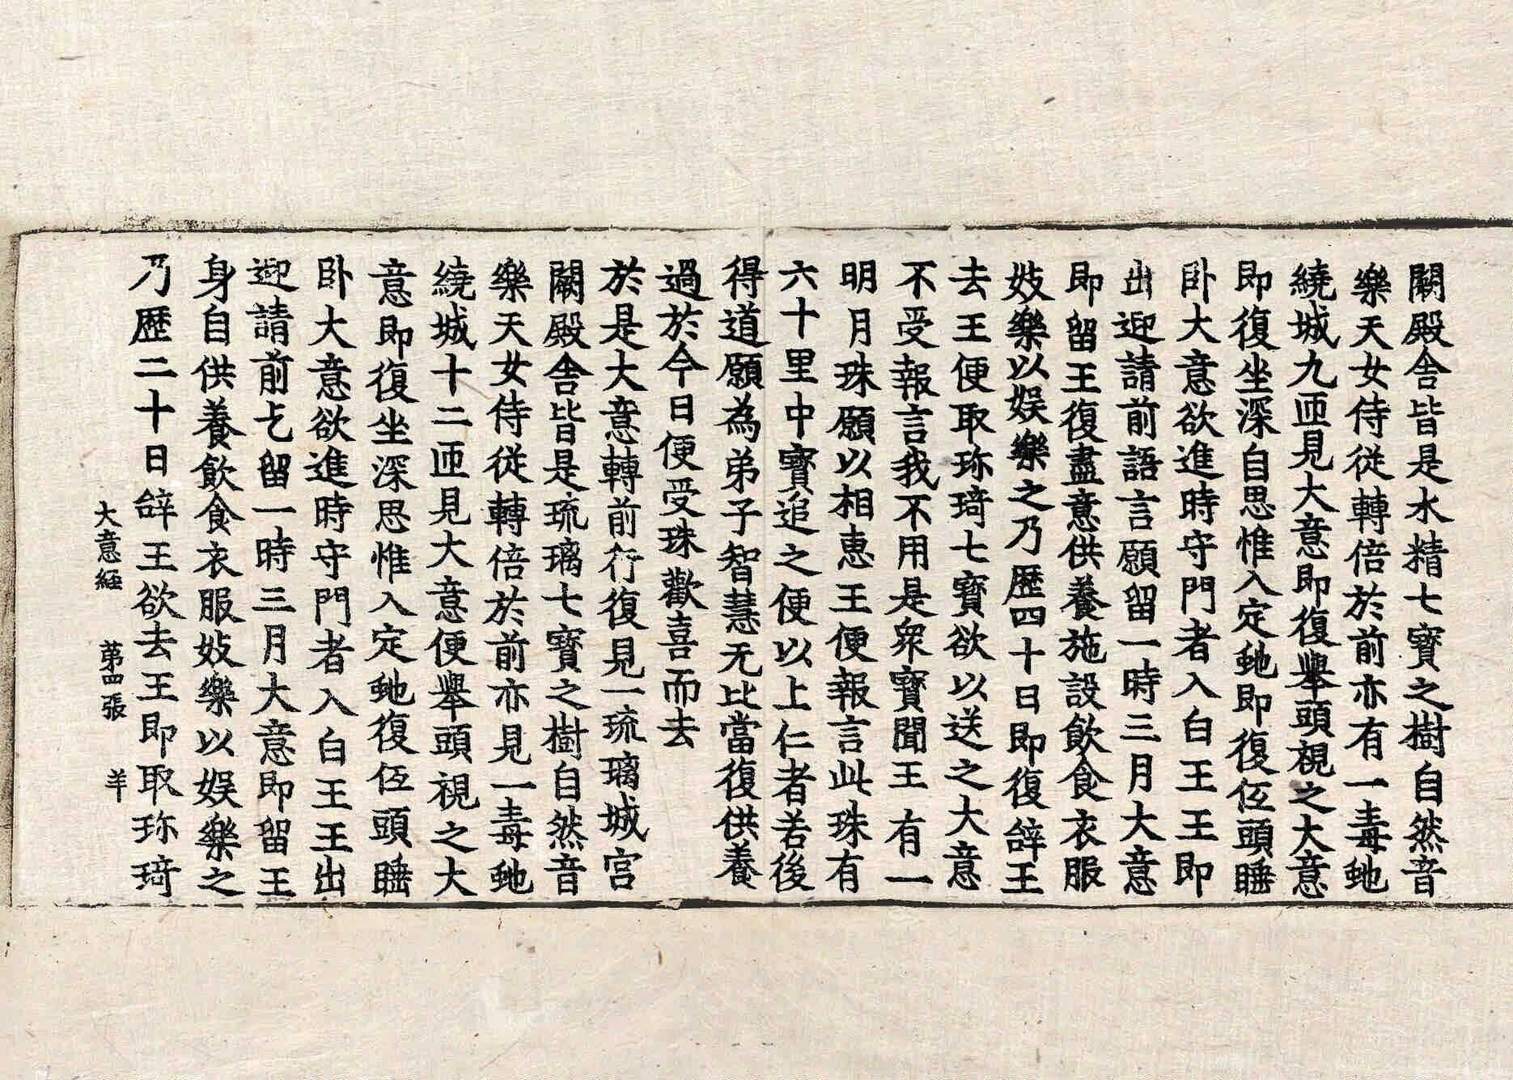 闕殿舍皆是水精七寶之樹自然音
樂天女侍從轉倍於前亦有一毒虵
繞城九迊見大意即復舉頭視之大意
即復坐深自思惟入定虵即復仾頭睡
卧大意欲進時守門者入白王王即
出迎請前語言願留一時三月大意
即留王復盡意供養施設飲食衣服
妓樂以娛樂之乃歷四十日即復辝王
去王便取珎琦七寳欲以送之大意
不受報言我不用是衆寳聞王有一
明月珠願以相惠王便報言此珠有
六十里中寳追之便以上仁者若後
得道願為弟子智慧无比當復供養
過於今日便受珠歡喜而去
於是大意轉前行復見一琉璃城宫
闕殿舍皆是琉璃七寳之樹自然音
樂天女侍従轉倍於前亦見一毒虵
繞城十二迊見大意便舉頭視之大
意即復坐深思惟入定虵復仾頭睡
卧大意欲進時守門者入白王王出
迎請前乞留一時三月大意即留王
身自供養飲食衣服妓樂以娛樂之
乃歷二十日辝王欲去王即取珎琦
大意經 苐四張 羊